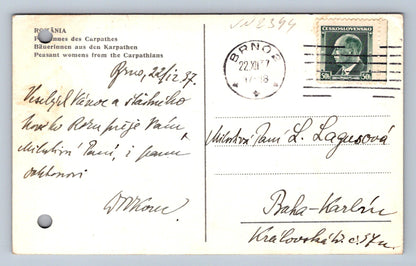 ROMÂNIA
Paysannes des Carpathes
Bäuerinnen aus den Karpathen
Peasant womens from the Carpathians
ČESKOSLOVENSKO
50h 50h
BRNO 2
22.XII.37
Brno, 22/12 37.
Veselých Vánoc a šťastného
Nového Roku přeje Vám,
Milostivá Paní, i panu
doktorovi
Milostivá Paní L. Lagusová
Praha-Karlín
Královská tř. č.